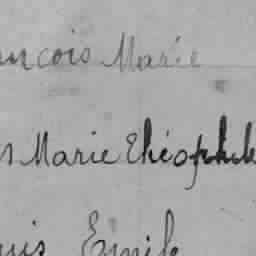 ançois Marie
s Marie Théophile
uis Emile